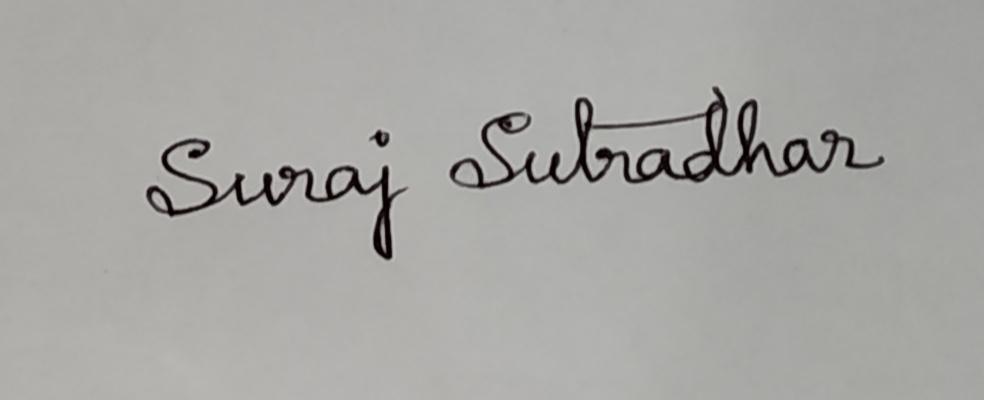 Suraj Sutradhar